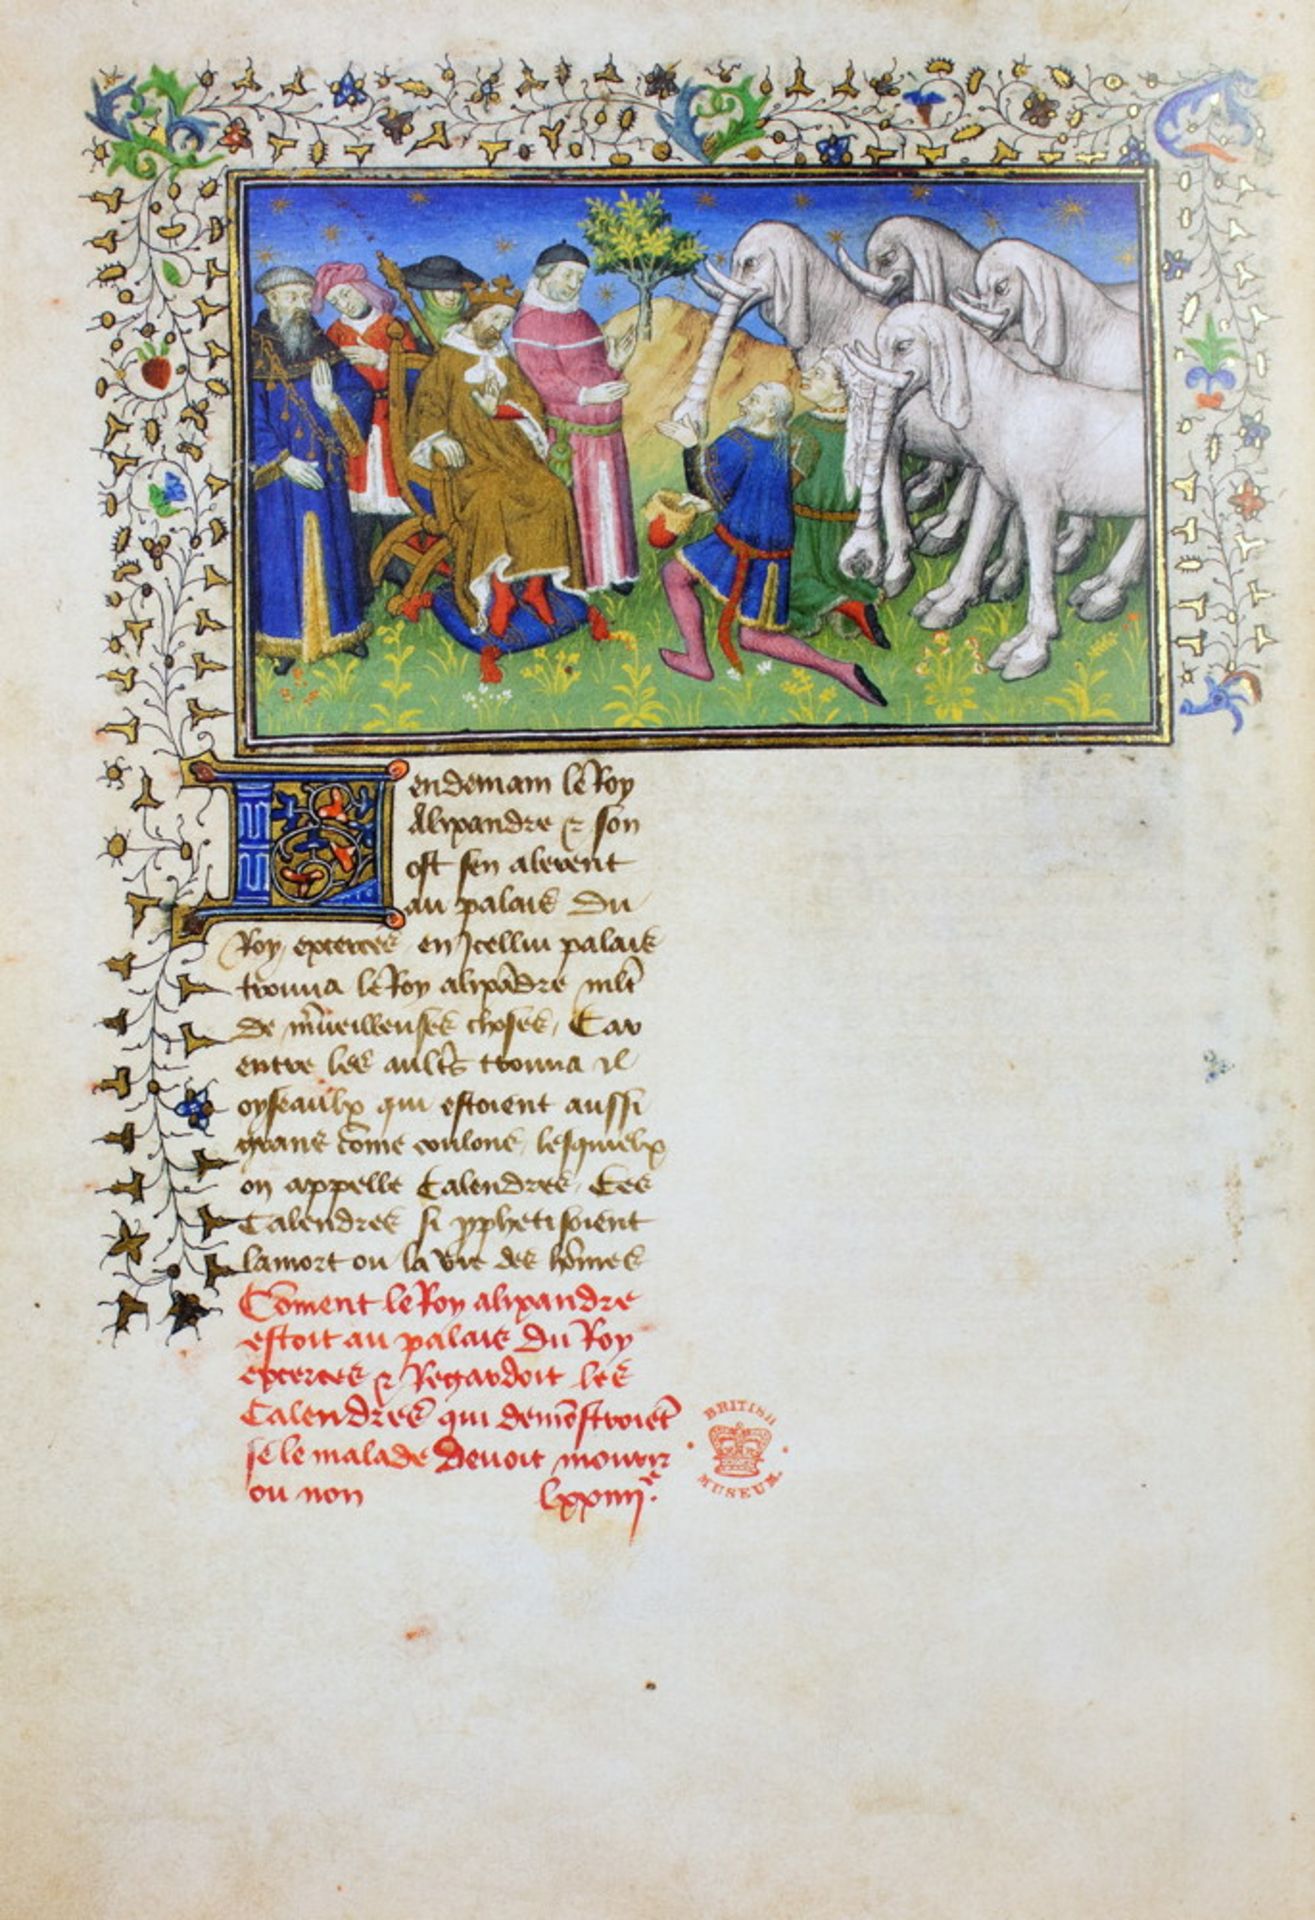 Lendemain le Roy
Alixandre & son
ost sen alerent
au palais du
Roy exerces en Icellui palais
trouua le Roy alixādre mlt
de mũeilleuses choses, Car
entre les aultˢ trouua il
oyseaulx qui estoient aussi
grans cōme coulons, lesquielx
on appelle Calendres, Ces
Calendres si ꝓphetisoient
la mort ou la vie des hōmes
Cōment le Roy alixandre
estoit au palais du Roy
exerces & Regardoit les
Calendres qui demōstroiēt
se le malade deuoit mourir
ou non lxxiiij.ᵉ
BRITISH
MUSEUM